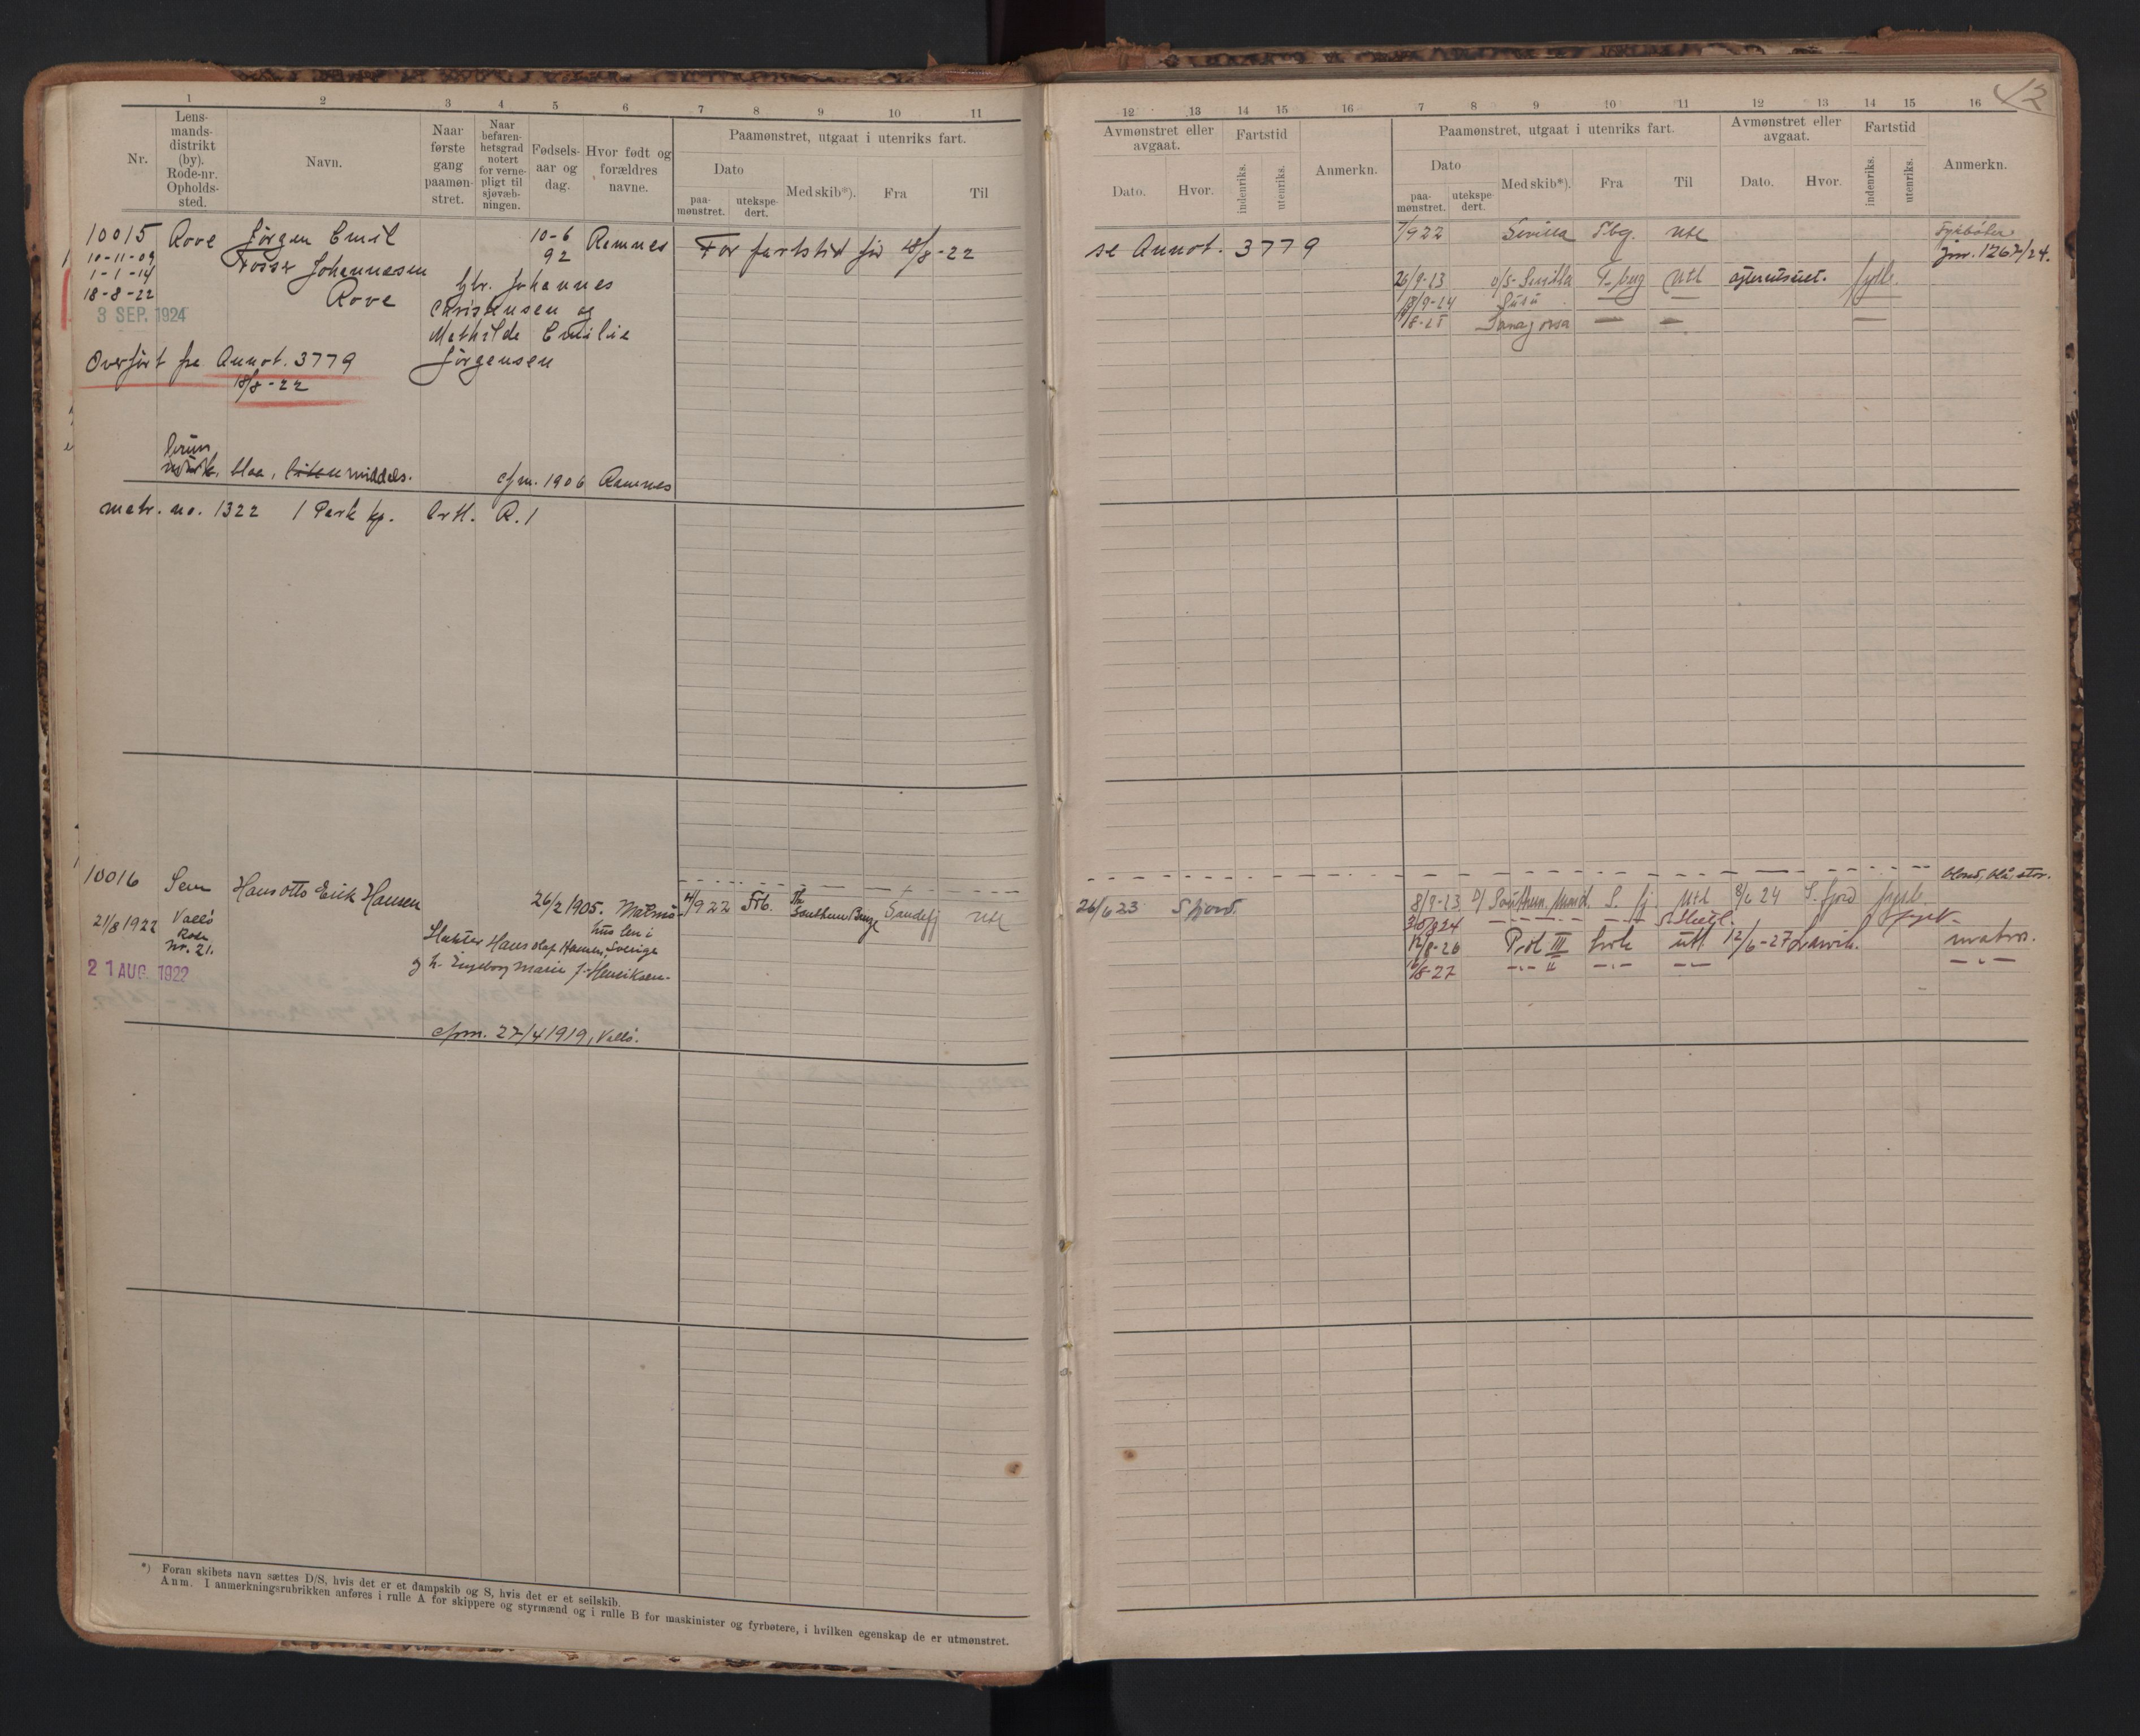 1 2 3 4 5 6 7 8 9 10 11
Nr.
Lens-
mands-
distrikt
(by).
Rode-nr.
Opholds-
sted.
Navn.
Naar
første
gang
paamøn-
stret.
Naar
befaren-
hetsgrad
notert
for verne-
pligt til
sjøvæb-
ningen.
Fødsels-
aar og
dag.
Hvor født og
forældres
navne.
Paamønstret, utgaat i utenriks fart.
Dato
paa-
mønstret.
utekspe-
dert.
Med skib*).
Fra
Til
10015 Rove Jörgen Emil 10-6 Ramnes For fartstid før 18/8-22
10-11-09 Johannesen 92
1-1-14 Rove
18-8-22
3 SEP. 1924
Johannes
Christensen og
Mathilde Emilie
Jörgensen
Overført fra Annot. 3779
18/8-22
brun
blaa, liten middels. cfm. 1906 Ramnes
matr. no. 1322 1 Park kp. R. 1
10016 Sem Hans Otto Erik Hansen 26/2 1905. Malmö
21/8 1922 Vallö
Rode
nr. 21.
21 AUG. 1922
Hans Olaf Hansen, Sverige
Ingeborg Marie f. Henriksen.
4/9 22 Southern Sandefj Utl
cfm. 27/4 1919, Vallö.
*) Foran skibets navn sættes D/S, hvis det er et dampskib og S, hvis det er et seilskib.
Anm. I anmerkningsrubrikken anføres i rulle A for skippere og styrmænd og i rulle B for maskinister og fyrbøtere, i hvilken egenskap de er utmønstret.
12
12 13 14 15 16 7 8 9 10 11 12 13 14 15 16
Avmønstret eller
avgaat.
Dato.
Hvor.
Fartstid
indenriks.
utenriks.
Anmerkn.
Paamønstret, utgaat i utenriks fart.
Dato
paa-
mønstret.
utekspe-
dert.
Med skib*).
Fra
Til
Avmønstret eller
avgaat.
Dato.
Hvor.
Fartstid
indenriks.
utenriks.
Anmerkn.
se Annot. 3779
7/9 22 Sevilla Tbg. Utl Fyrbøter
jnr. 1267/24.
26/9-23 D/S Sevilla T-berg Utl
blond, blå, stor.
26/6 23 S fjord. 8/9-23 Southern S. fj. Utl 8/6 24 S. fjord
12/8-26 Prot III utl 12/6-27 Larvik. matros.